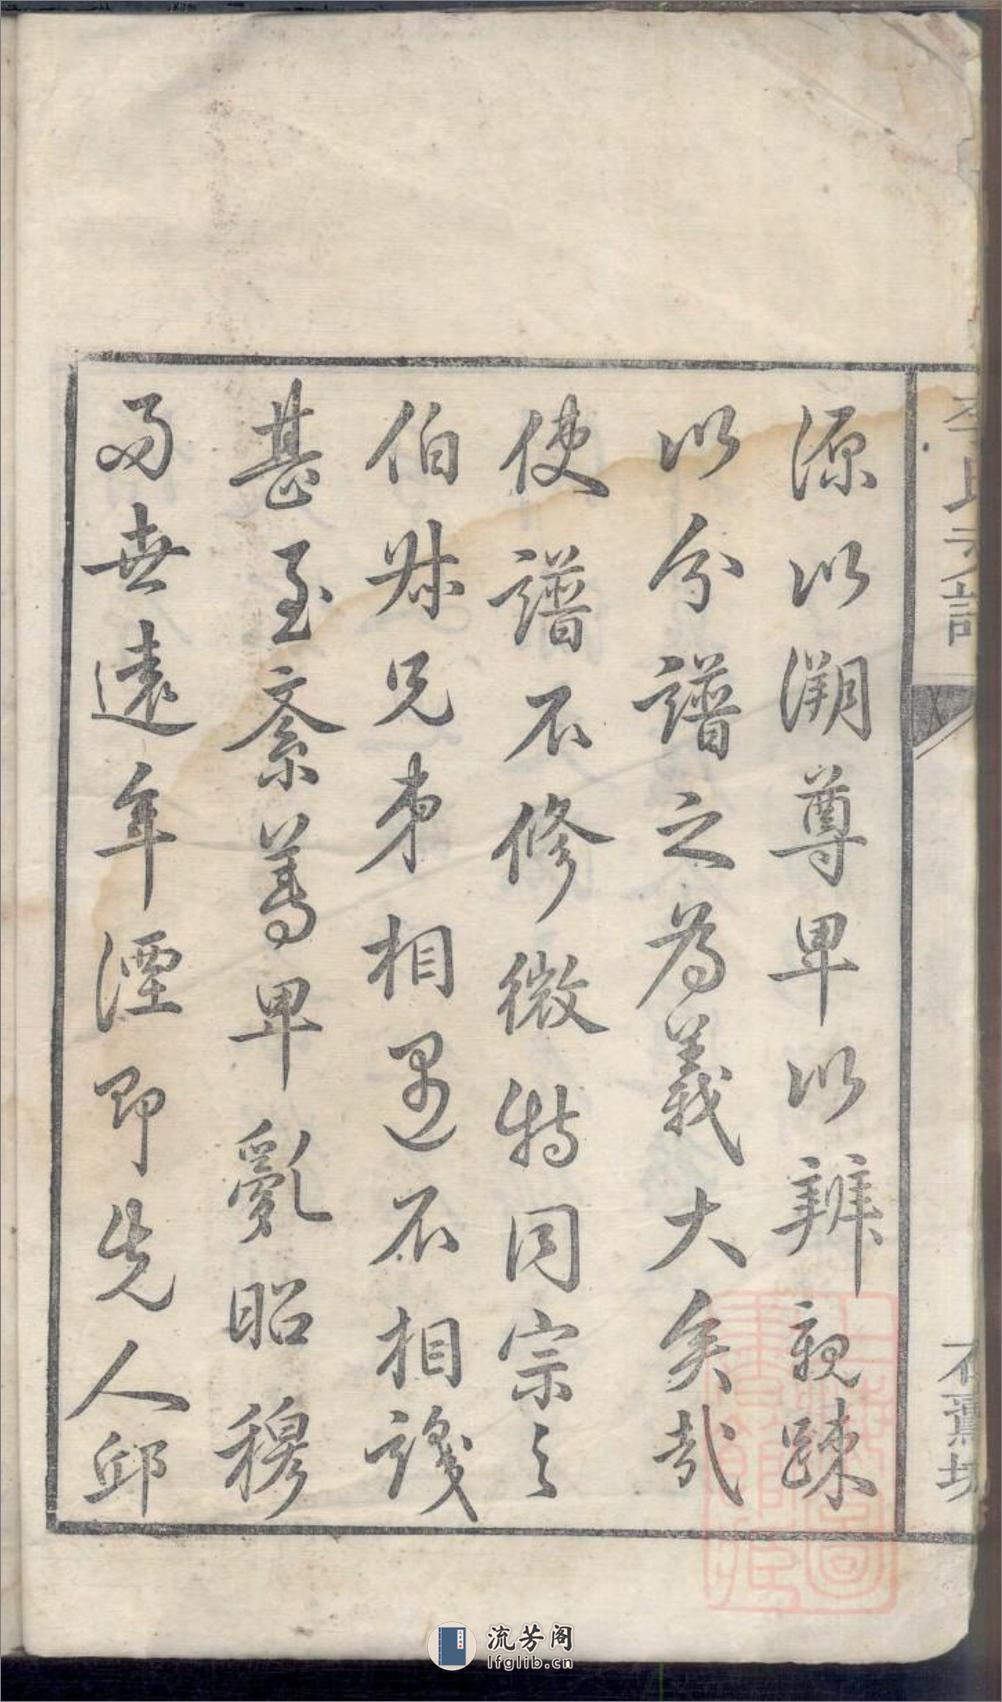 源以溯尊卑以辨親疎
以分譜之為義大矣哉
使譜不修微特同宗之
伯叔兄弟相遇不相識
甚至紊尊卑亂昭穆
而世遠年湮即先人邱
李氏
流芳阁
lfglib.cn